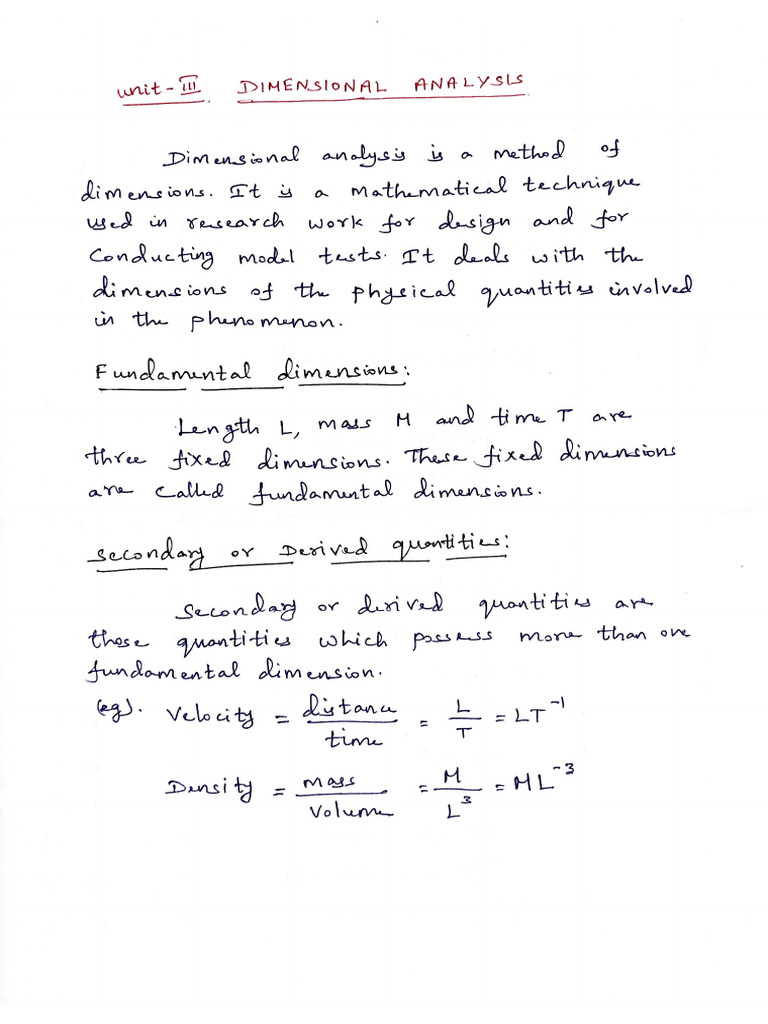 Unit-III DIMENSIONAL ANALYSIS
Dimensional analysis is a method of
dimensions. It is a mathematical technique
used in research work for design and for
conducting model tests. It deals with the
dimensions of the physical quantities involved
in the phenomenon.
Fundamental dimensions:
Length L, mass M and time T are
three fixed dimensions. These fixed dimensions
are called fundamental dimensions.
Secondary or Derived quantities:
Secondary or derived quantities are
those quantities which possess more than one
fundamental dimension.
(eg). Velocity = distance/time = L/T = LT⁻¹
Density = mass/Volume = M/L³ = ML⁻³